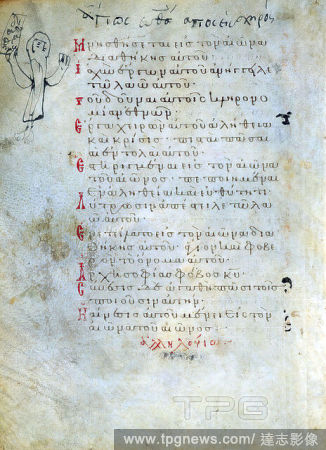 Μνησθήσεται εἰς τὸν αἰῶνα
διαθήκης αὐτοῦ·
Ἰσχὺν ἔργων αὐτοῦ ἀνήγγειλε
τῷ λαῷ αὐτοῦ·
Τοῦ δοῦναι αὐτοῖς κληρονο
μίαν ἐθνῶν·
Ἔργα χειρῶν αὐτοῦ ἀλήθεια
καὶ κρίσις· πισταὶ πᾶσαι
αἱ ἐντολαὶ αὐτοῦ·
Ἐστηριγμέναι εἰς τὸν αἰῶνα
τοῦ αἰῶνος· πεποιημέναι
ἐν ἀληθείᾳ καὶ εὐθύτητι·
Λύτρωσιν ἀπέστειλε τῷ λαῷ
αὐτοῦ·
Ἐνετείλατο εἰς τὸν αἰῶνα δια
θήκην αὐτοῦ· ἅγιον καὶ φοβε
ρὸν τὸ ὄνομα αὐτοῦ·
Ἀρχὴ σοφίας φόβος κυ
Σύνεσις δὲ ἀγαθὴ πᾶσι τοῖς
ποιοῦσιν αὐτήν·
Ἡ αἴνεσις αὐτοῦ μένει εἰς τὸν
αἰῶνα τοῦ αἰῶνος·
ἀλληλούια
TPG
www.tpgnews.com/達志影像